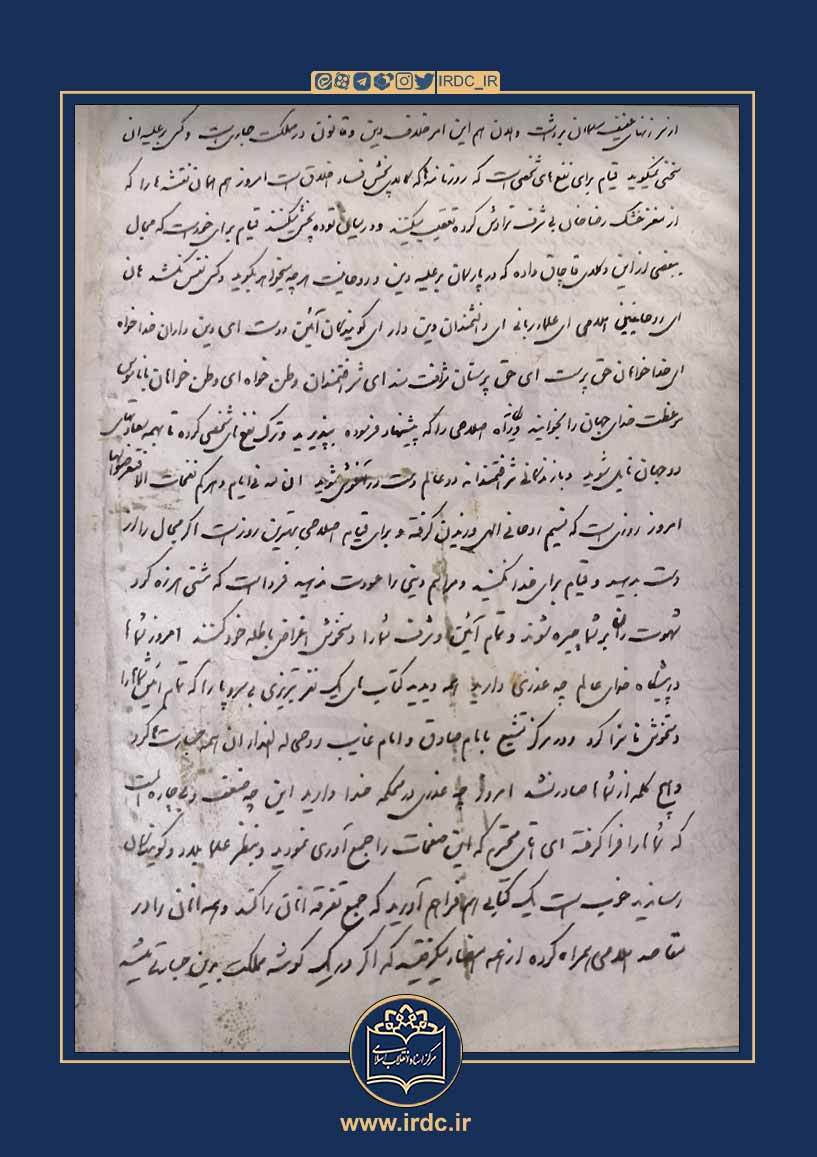 IRDC_IR
از سر زنهای عفیف مسلمان برداشت و الان هم این امر خلاف دین و قانون در مملکت جاری است و کسی بر علیه آن
سخنی نمیگوید قیام برای نفع های شخصی است که روزنامه ها که کالای پخش فساد اخلاق است امروز هم همان نقشه ها را که
از مغز خشک رضاخان بی شرف تراوش کرده تعقیب میکنند و در میان توده پخش میکنند قیام برای خود است که مجال
ببعضی از این وکلای قاچاق داده که در پارلمان بر علیه دین و روحانیت هر چه میخواهد بگوید و کسی نفس نکشد هان
ای روحانیین اسلامی ای علماء ربانی ای دانشمندان دین دار ای گویندگان آئین دوست ای دین داران خداخواه
ای خداخواهان حق پرست ای حق پرستان شرافتمند ای شرافتمندان وطن خواه ای وطن خواهان باناموس
موعظت خدای جهان را بخوانید و یگانه راه اصلاحی را که پیشنهاد فرموده بپذیرید و ترک نفع های شخصی کرده تا بهمه سعادتهای
دو جهان نایل شوید و با زندگانی شرافتمندانه دو عالم دست در آغوش شوید ان لله فی ایام دهرکم نفحات الا فتعرضوا لها
امروز روزی است که نسیم روحانی الهی وزیدن گرفته و برای قیام اصلاحی بهترین روز است اگر مجال را از
دست بدهید و قیام برای خدا نکنید و مراسم دینی را عودت ندهید فردا است که مشتی هرزه گرد
شهوت ران بر شما چیره شوند و تمام آئین و شرف شما را دستخوش اغراض باطله خود کنند امروز شماها
در پیشگاه خدای عالم چه عذری دارید همه دیدید کتابهای یک نفر تبریزی بی سروپا را که تمام آئین شماها را
دستخوش ناسزا کرد و در مرکز تشیع بامام صادق و امام غایب روحی له الفداء آن همه جسارت ها کرد
و هیچ کلمه از شماها صادر نشد امروز چه عذری در محکمه خدا دارید این چه ضعف و بیچارگی است
که شماها را فرا گرفته ای آقای محترم که این صفحات را جمع آوری نمودید و بنظر علماء بلاد و گویندگان
رساندید خوب است یک کتابی هم فراهم آورید که جمع تفرقه آنان را کند و همه آنان را در
مقاصد اسلامی همراه کرده از همه امضاء میگرفتید که اگر در یک گوشه مملکت بدین جسارتی میشد
مرکز اسناد انقلاب اسلامی
www.irdc.ir